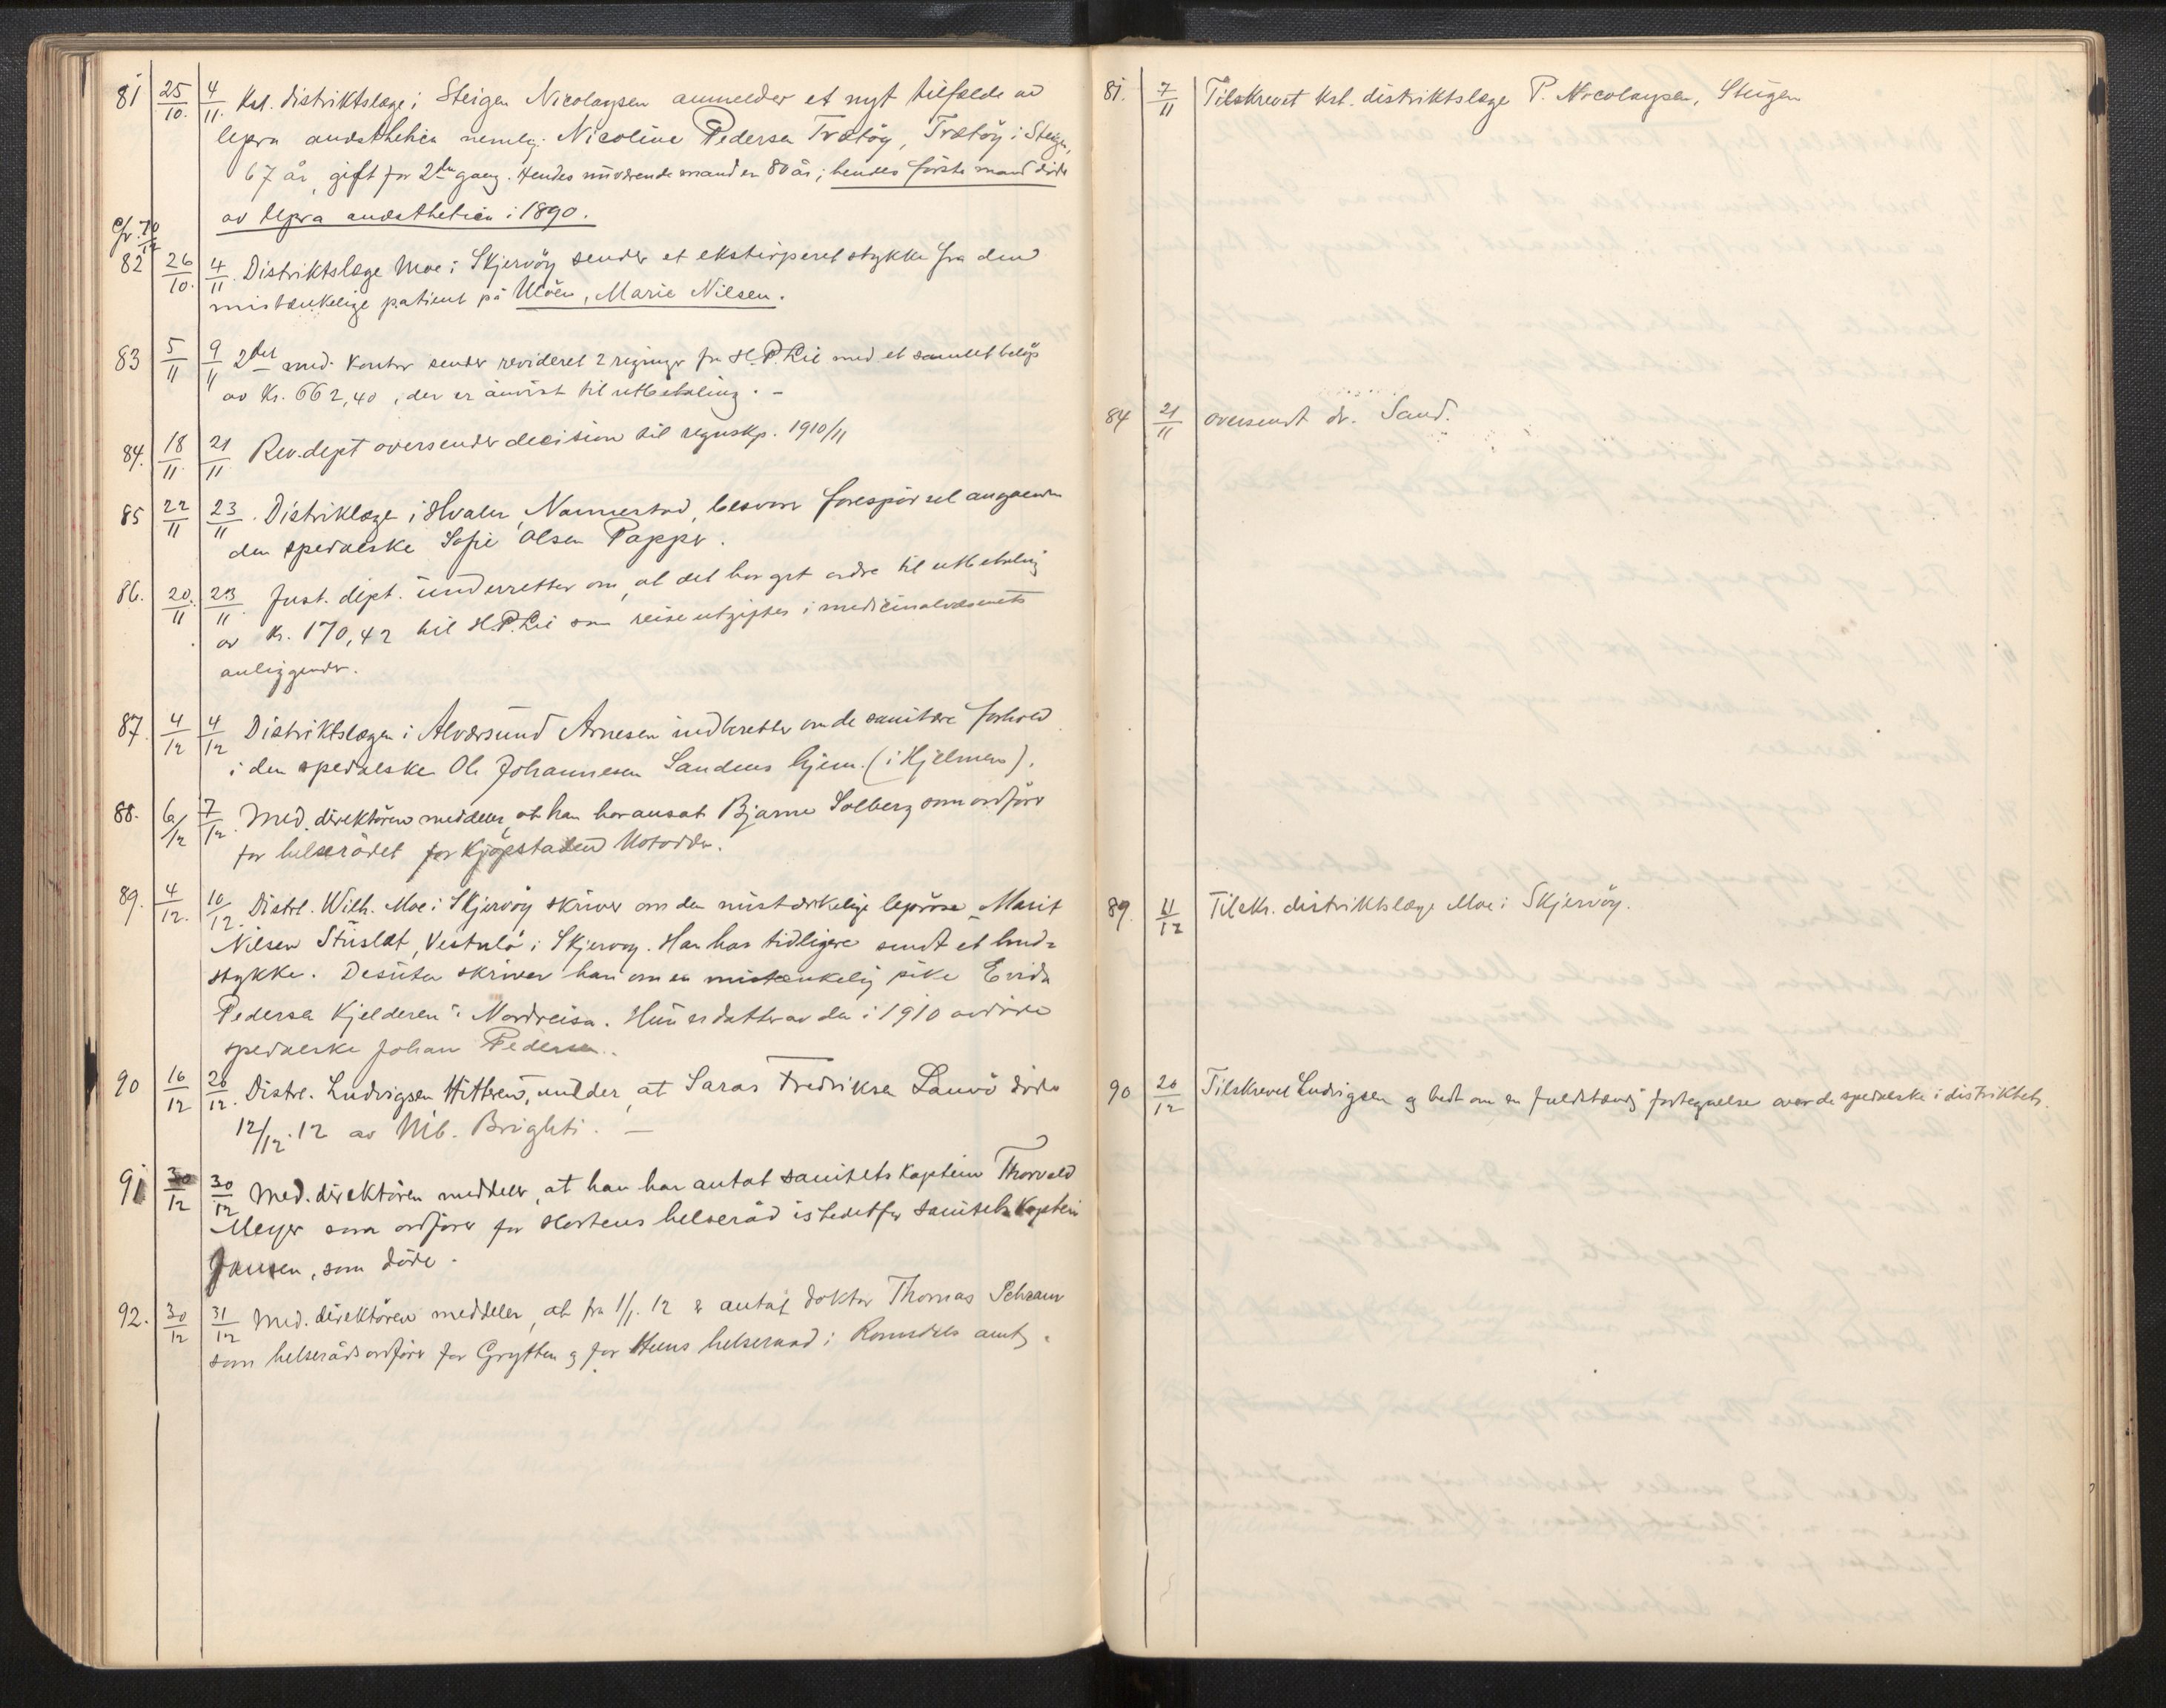 81 25/10. 4/11. Kst. distriktslæge i Steigen Nicolaysen anmelder et nyt tilfælde av
lepra anæsthetica nemlig: Nicoline Pedersen Trætöy, Trætöy i Steigen,
67 år, gift for 2den gang. Hendes nüværende mand er 80 år; hendes förste mand döde
av lepra anæsthetica i 1890.
cfr. 70/12
82 26/10. 4/11. Distriktslæge Moe i Skjervöy sender et ekstirperet stykke fra den
mistænkelige patient på Ulöen, Marie Nilsen.
83 5/11 9/11 2det med. kontor sender revideret 2 reginger fra H.P. Lie med et samlet belöp
av Kr. 662,40, der er anvist til utbetaling. –
84. 18/11. 21/11. Rev.dept oversender decision til regnskp. 1910/11
85 22/11 23/11. Distriktlæge i Hvaler, Nannestad, besvarer forespörsel angaaende
den spedalske Sofie Olsen Papper.
86. 20./11. 23/11. Just. dept. ünderretter om, at det har git ordre til utbetaling
av kr. 170,42 til H.P. Lie som reiseutgifter i medicinalvæsenets
anliggender.
87. 4/12 4/12 Distriktslægen i Alversund Arnesen indberetter om de sanitære forhold
i den spedalske Ole Johannesen Sandens hjem. (i Hjelmen).
88. 6/12 7/12. Med. direktören meddeler, at han har ansat Bjarne Solberg som ordförer
for helserådet for Kjöpstaden Notodden.
89. 4/12. 10/12. Distrl. Wilh. Moe i Skjervöy skriver om den mistænkelige lepröse Marit
Nilsen Stüslæt, Vestulö i Skjervoy. Han har tidligere sendt et hud=
stykke. Desüten skriver han om en mistænkelig pike
Pedersen Kjelderen i Nordreisa. Hün er datter av den i 1910 avdöde
spedalske Johan Pedersen.
90 16/12 20/12. Distrl. Ludvigsen Hitteren, melder, at Saras Fredriksen Lauvö döde
12/12.12 av Mb. Brighti. –
91 30/12 30/12 Med. direktören meddeler, at han har antat sanitetskaptein Thorvald
Meyer som ordförer for Hortens helseråd istedetfor sanitetskaptein
Jensen, som döde.
92. 30/12 31/12 Med. direktören meddeler, at fra 1/1. 12 er antat doktor Thomas Schram
som helserådsordförer for Grytten og for Heens helseraad i Romsdals amt.
81. 7/11 Tilskrevet kst. distriktslæge P. Nicolaysen, Steigen
84 21/11 oversendt dr. Sand.
89. 11/12 Tilskr. distriktslæge Moe i Skjervöy.
90 20/12 Tilskrevet Ludvigsen og bedt om en fuldstændig fortegnelse over de spedalske i distriktet.